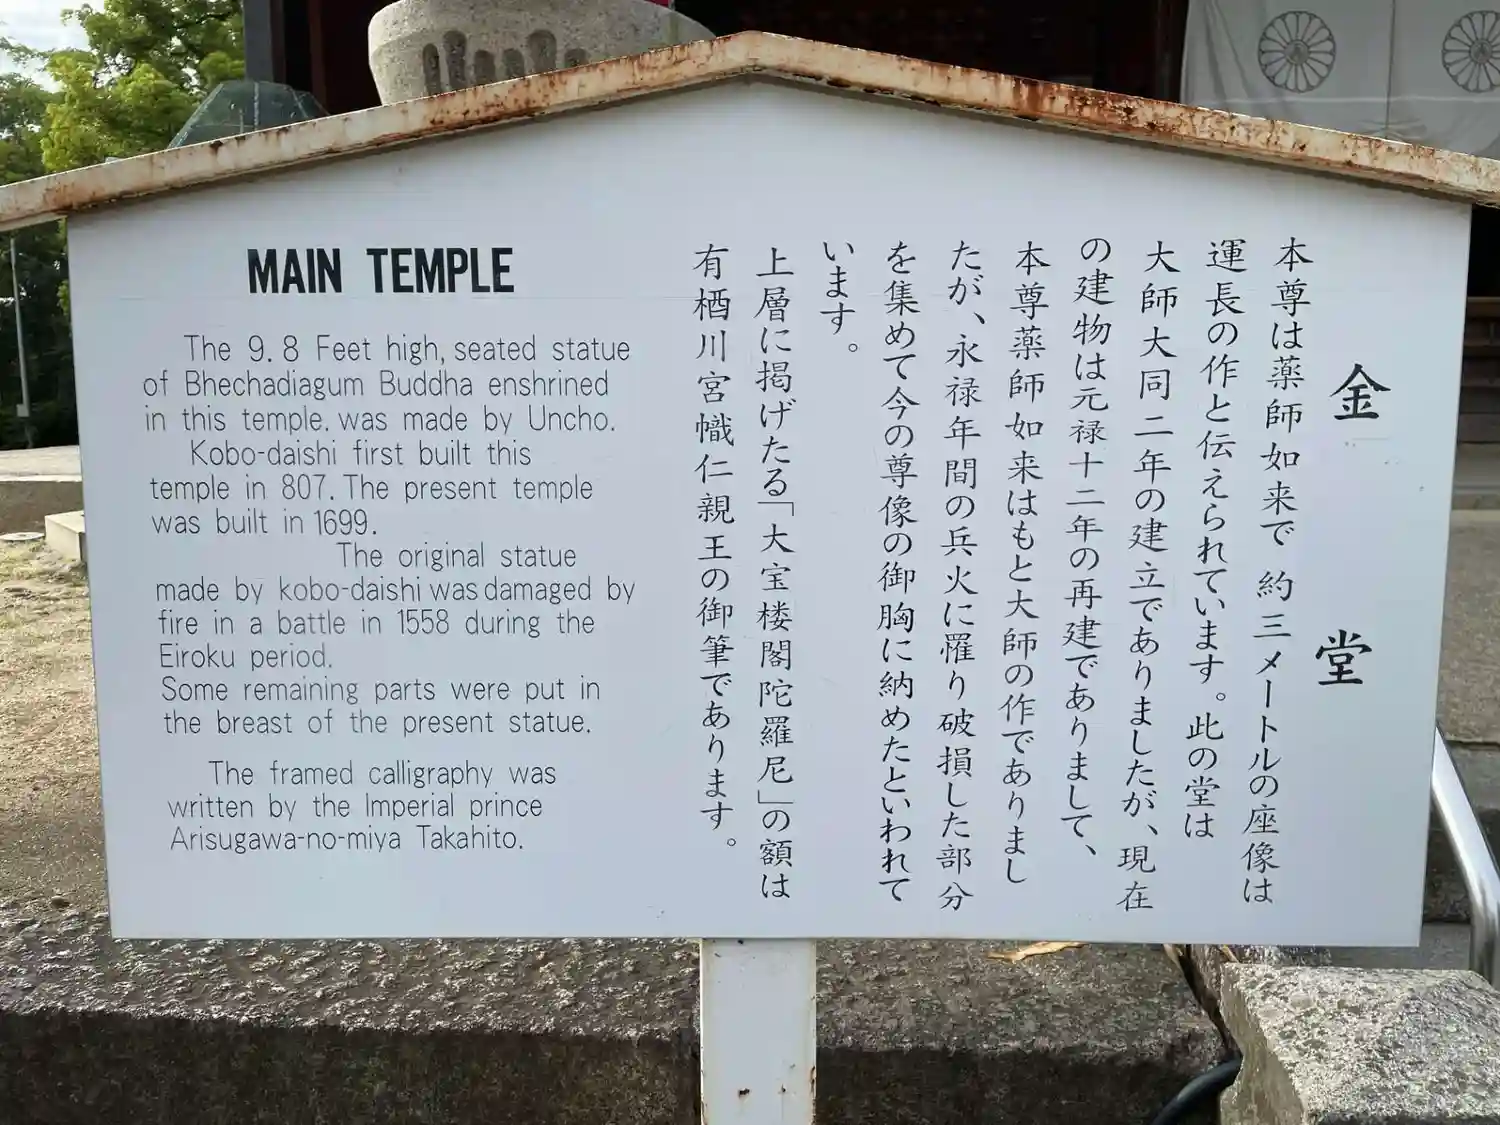 MAIN TEMPLE
The 9.8 Feet high, seated statue
of Bhechadiagum Buddha enshrined
in this temple. was made by Uncho.
Kobo-daishi first built this
temple in 807. The present temple
was built in 1699.
The original statue
made by kobo-daishi was damaged by
fire in a battle in 1558 during the
Eiroku period.
Some remaining parts were put in
the breast of the present statue.
The framed calligraphy was
written by the Imperial prince
Arisugawa-no-miya Takahito.
金堂
本尊は薬師如来で 約三メートルの座像は
運長の作と伝えられています。此の堂は
大師大同二年の建立でありましたが、現在
の建物は元禄十二年の再建でありまして、
本尊薬師如来はもと大師の作でありまし
たが、永禄年間の兵火に罹り破損した部分
を集めて今の尊像の御胸に納めたといわれて
います。
上層に掲げたる「大宝楼閣陀羅尼」の額は
有栖川宮幟仁親王の御筆であります。